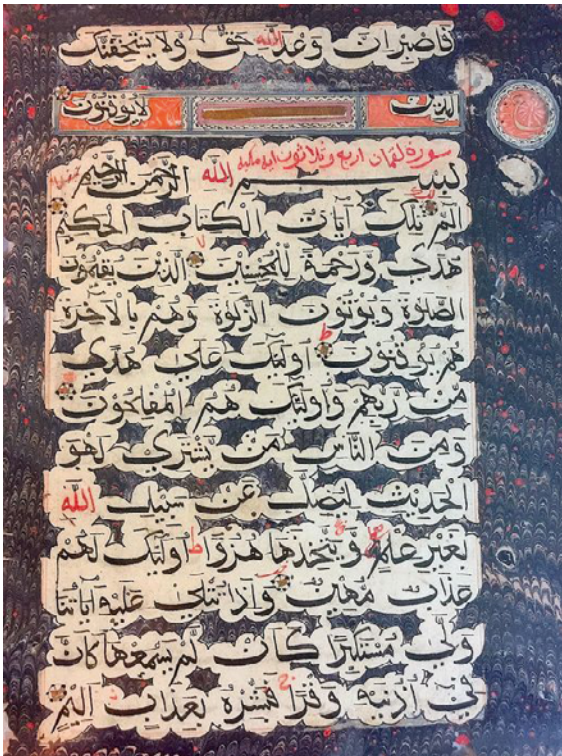 فَاصْبِرْ اِنَّ وَعْدَ اللّٰهِ حَقٌّ وَلَا يَسْتَخِفَّنَّكَ
الَّذِينَ لَا يُوقِنُونَ
سورة لقمان اربع وثلاثون اية مكية
بِسْمِ اللّٰهِ الرَّحْمٰنِ الرَّحِيمِ
الٓمٓ تِلْكَ آيَاتُ الْكِتَابِ الْحَكِيمِ
هُدًى وَرَحْمَةً لِلْمُحْسِنِينَ الَّذِينَ يُقِيمُونَ
الصَّلٰوةَ وَيُؤْتُونَ الزَّكٰوةَ وَهُمْ بِالْآخِرَةِ
هُمْ يُوقِنُونَ ط اُولٰئِكَ عَلٰى هُدًى
مِنْ رَبِّهِمْ وَاُولٰئِكَ هُمُ الْمُفْلِحُونَ
وَمِنَ النَّاسِ مَنْ يَشْتَرِي لَهْوَ
الْحَدِيثِ لِيُضِلَّ عَنْ سَبِيلِ اللّٰهِ
بِغَيْرِ عِلْمٍ وَيَتَّخِذَهَا هُزُوًا ط اُولٰئِكَ لَهُمْ
عَذَابٌ مُهِينٌ وَاِذَا تُتْلٰى عَلَيْهِ آيَاتُنَا
وَلّٰى مُسْتَكْبِرًا كَاَنْ لَمْ يَسْمَعْهَا كَاَنَّ
فِي اُذُنَيْهِ وَقْرًا ج فَبَشِّرْهُ بِعَذَابٍ اَلِيمٍ